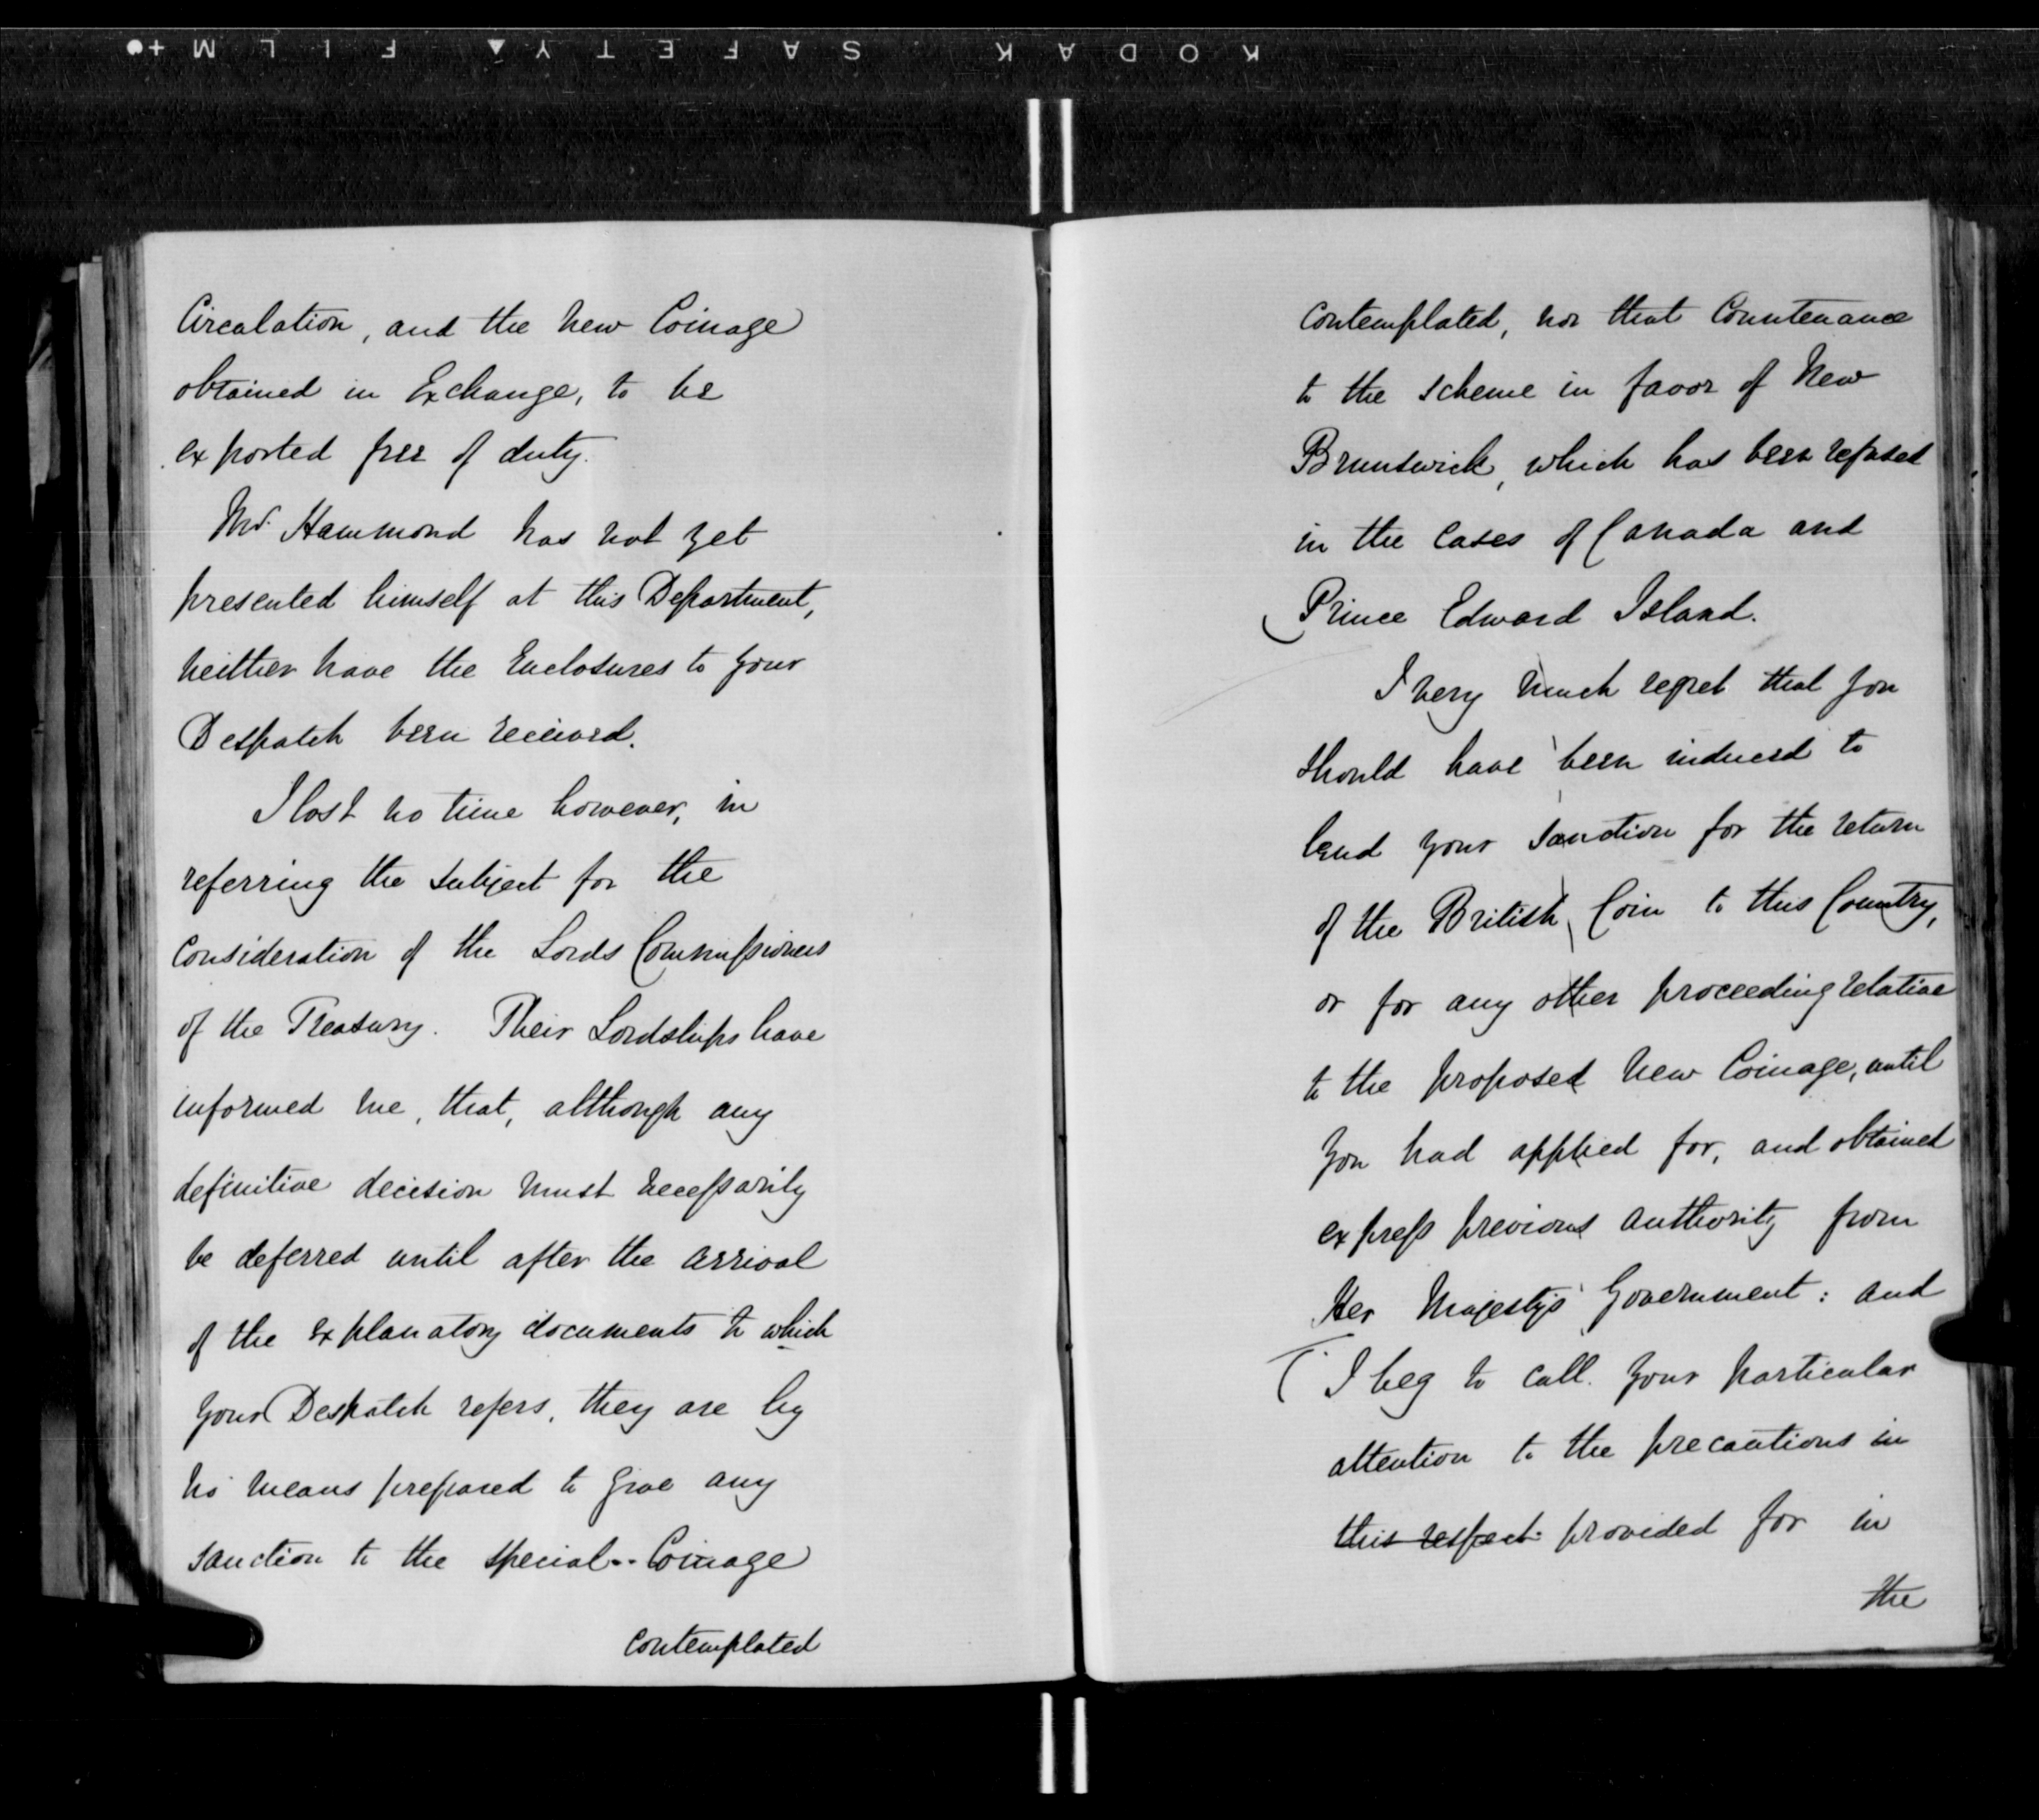 KODAK SAFETY FILM
Circulation, and the New Coinage
obtained in Exchange, to be
exported free of duty.
Mr. Hammond has not yet
presented himself at this Department,
neither have the Enclosures to your
Despatch been received.
I lost no time however, in
referring the subject for the
consideration of the Lords Commissioners
of the Treasury. Their Lordships have
informed me, that, although any
definitive decision must necessarily
be deferred until after the arrival
of the explanatory documents to which
your Despatch refers, they are by
no means prepared to give any
sanction to the special Coinage
contemplated
contemplated, nor that Countenance
to the scheme in favor of New
Brunswick, which has been refused
in the cases of Canada and
Prince Edward Island.
I very much regret that you
should have been induced to
lend your sanction for the return
of the British Coin to this Country,
or for any other proceeding relative
to the proposed New Coinage, until
you had applied for, and obtained
express previous authority from
Her Majesty's Government: and
I beg to call your particular
attention to the precautions in
this respect provided for in
the